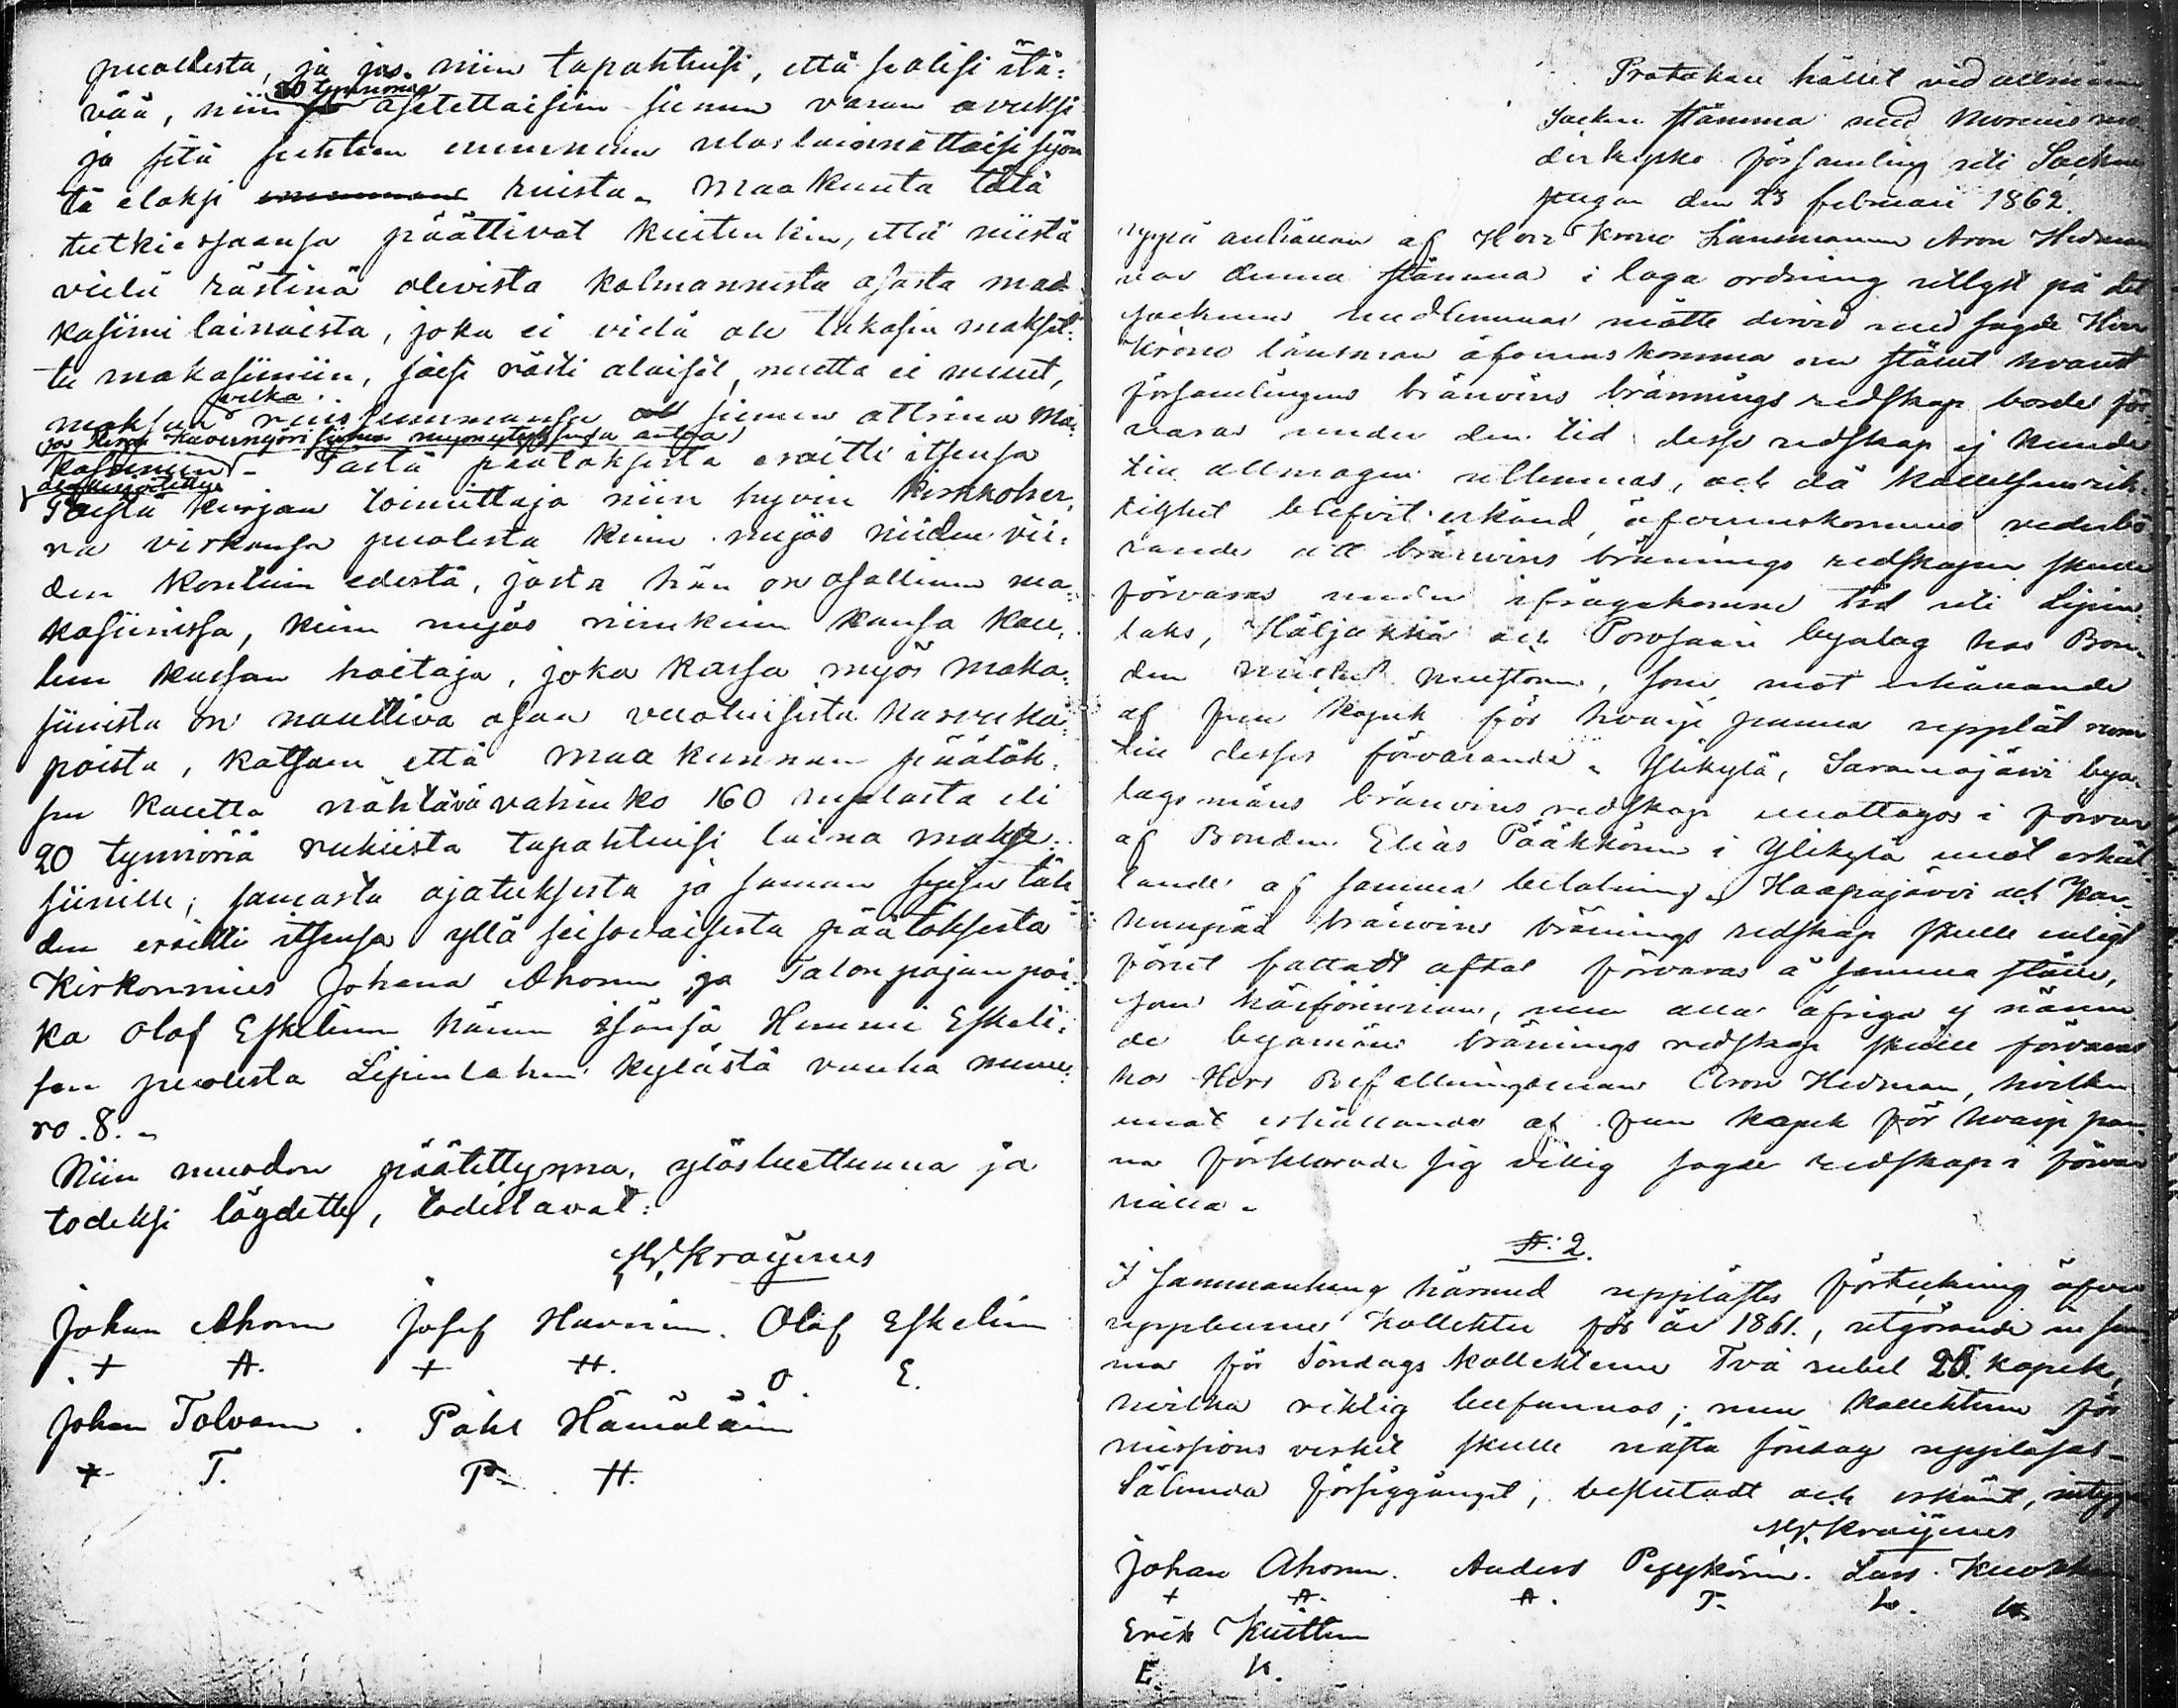 puollesta, ja jos niin tapahtuisi, että s olisi itä:
20 tynnöriä
vää, niin asetettaisiin siemen varan avuksi
ja sitä suhteen ulos lainattaisi syön
tä eloksi ruista. Maakunta tätä
tutkiessansa päättivät kuitenkin, että niistä
vielä rästinä olevista kolmannesta osasta mad
kasiini lainoista, joka ei vielä ole takasin maksit:
tu makasiiniin, saisi rästi alaiset, mutta ei muut,
jolka
maksaa siemen attina Ma:
jos Herra Kuvernööri siihen myönnytyksensä antaa
kasiiniin - Tästä päätöksestä eroitti itsensä
allekirjoitettu
Tästä kirjan toimittaja niin hyvin kirkkoher,
ra virkansa puolesta kuin myös niiden vii:
den kontuin edestä, josta hän on osallinen ma:
kasiinissa, kuin myös niinkuin kansa kou,
lun kassan hoitaja, joka kassa myös maka:
siinista on nauttiva osan vuotuisista kasvuka:
poista, katsoen että maa kunnan päätök:
sen kautta nähtävä vahinko 160 ruplasta eli
20 tynnöriä rukiista tapahtuisi laina maka:
siinille; samasta ajatuksesta ja saman syysen täh
den eroitti itsensä yllä seisovaisesta päätöksestä
Kirkonmies Johana Ahonen ja Talonpojan poi
ka Olof Eskelinen hänen isänsä Hemmi Eskeli:
sen puolesta Lipinlahen kylästä vanha nume:
ro. 8. -
Niin muodon päätettynnä, ylösluettuna ja
todeksi löydetty, todistavat:
Kraÿmes
Johan Ahonen Josef Huvinen. Olof Eskelin
+ A. + H. O. E.
Johan Tolvanen. Påhl Hämäläin
+ T. P. H.
Protokoll hållet vid allmän
Socken stämma med Nurmis mo
derkyrko församling uti Sockne
stugan den 23 februari 1862.
uppå anhållan af Herr Krono Länsmannen Aron Hedman
var denna stämma i laga ordning utlyst på det
socknens medlemmar måtte dervid med sagde Herr
Krono länsman öfverenskomma om stället hvarest
församlingens bränvins brännings redskap borde för
varas under den tid desse redskap ej kunde
till allmogen utlemnas, och då kallelsens rik:
tighet blifvit erkänd, öfverenskommo vederbö
rande att bränvins bränings redskapen skulle
förvaras under ifrågakomne tid uti Lipin
laks, Höljäkkä och Porosaari byalag hos Bon:
den Michel Mustonen, som mot erhållande
af fem kopek för hvarje panna upplät rum
till desses förvarande. Ylikylä, Saramojärvi bya:
lags mäns bränvins redskap emottagos i förvar
af Bonden Elias Pääkkönen i Ylikylä emot erhål
lande af samma betalning. Haapajärvi och Kar:
hunpää bränvins bränings redskap skulle enligt
förut fattadt aftal förvaras å samma ställe,
som härförinnan, men alla öfriga ej nämn
de byamäns bränings redskap skulle förvaras
hos Herr Befallningsman Aron Hedman, hvilken
emot erhållande af fem kopek för hvarje pan:
na förklarade sig villig sagde redskap i förvar
hålla.
§: 2.
I sammanhang härmed upplästes förteckning öfver
uppburne Kollekter för år 1861, utgörande en sum
ma för Söndags kollekterne Två rubel 25 kopek,
hvilka riktig befunnos; men kollekten för
missions verket skulle nästa söndag uppläsas -
Sålunda försiggånget, beslutadt och erkänt, intyga
Kraÿmes
Johan Ahonen. Anders Pyykönen. Lars Kuokkanen
+ A. A. T. L. K.
Erik Kuittinen
E. K.